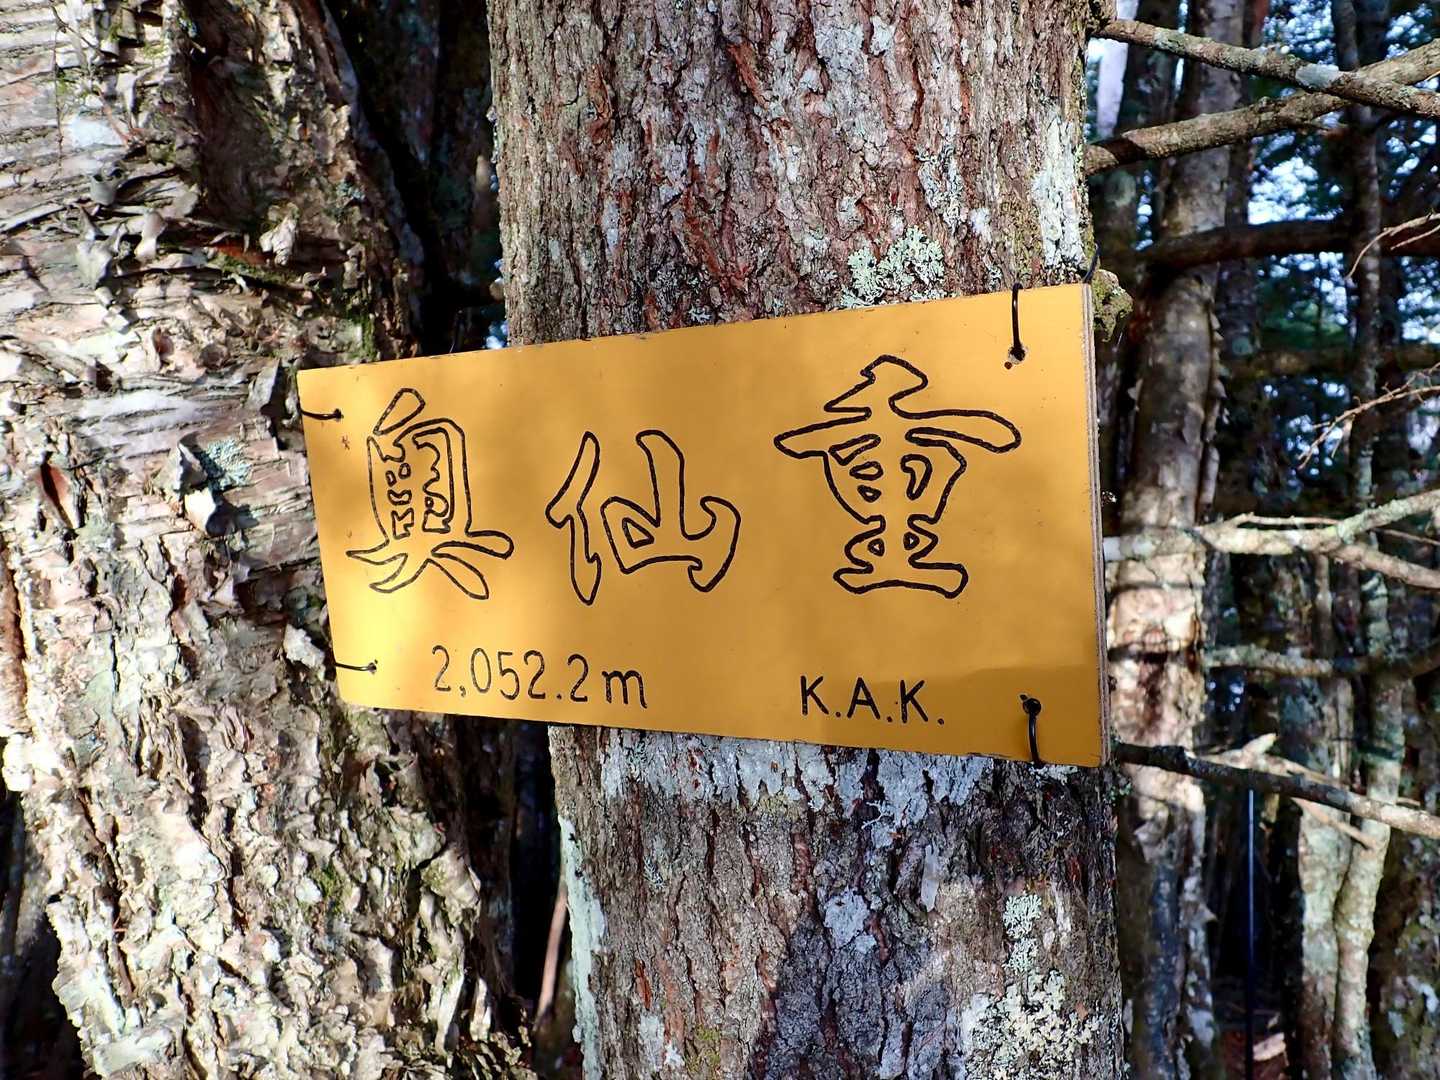 奥仙重
2,052.2m K.A.K.